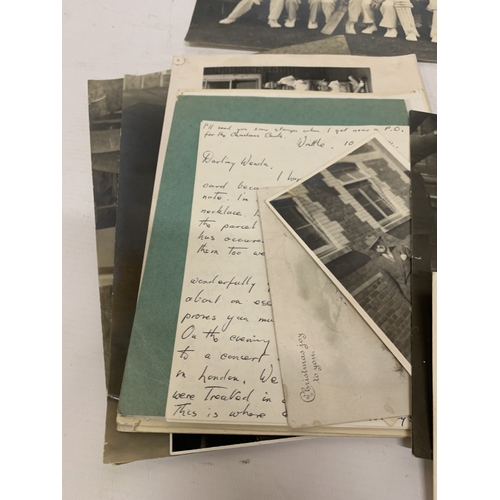 P.S. send you some stamps when I get near a P.O.
for the Christmas Cards.
Writtle, 10
Darling Wenda,
I hav
card beca
note. In
necklace. I
the parcel
has occurre
them too we
wonderfully
about on
proves you mu
On the evening
to a concert
in London. We
were treated in a
This is where a
Christmas joy
to you.